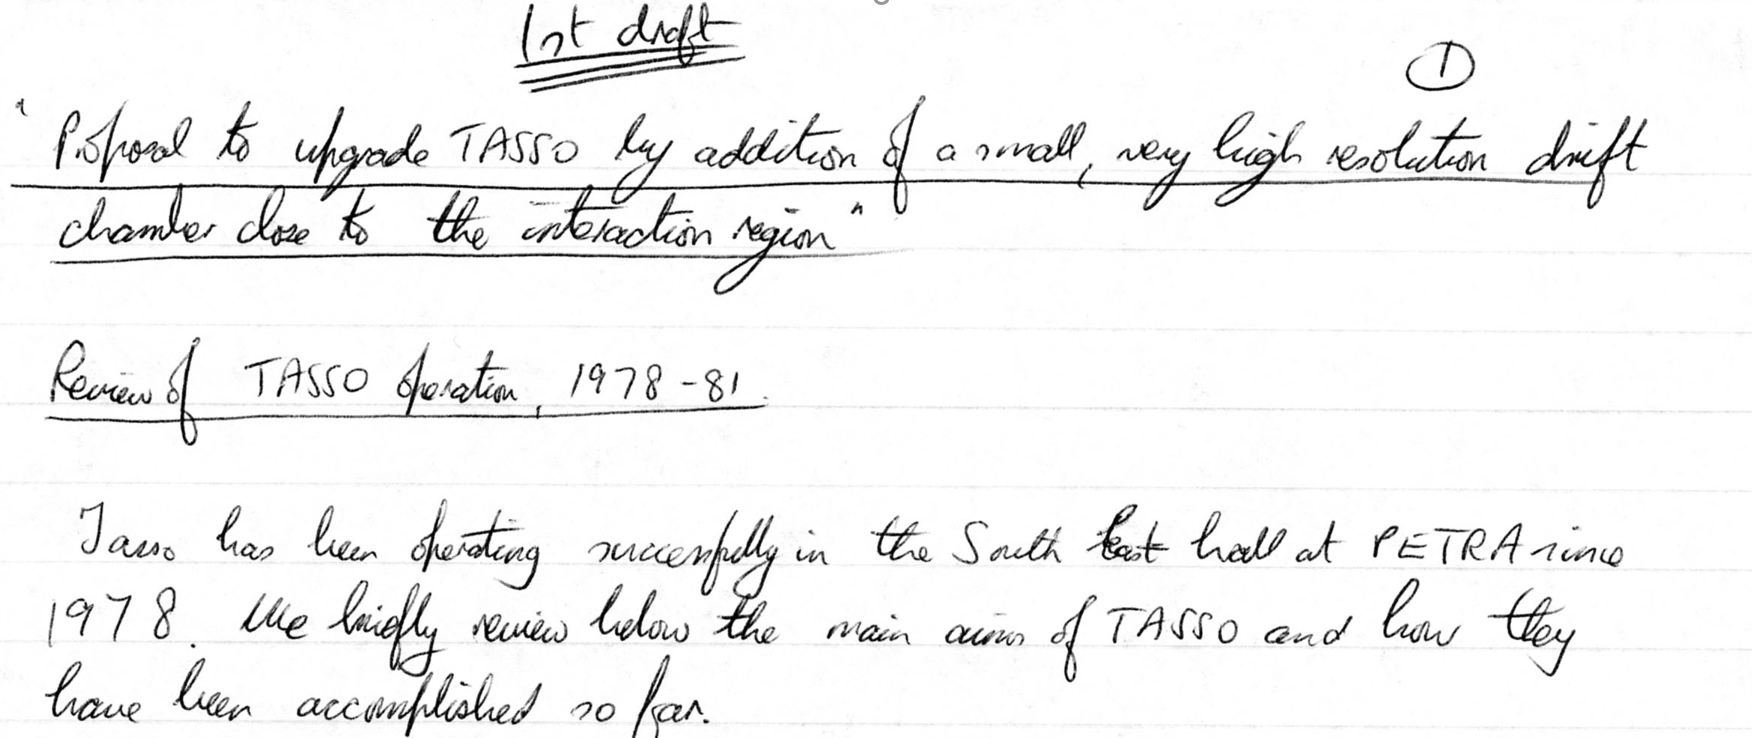 1st draft
①
"Proposal to upgrade TASSO by addition of a small, very high resolution drift
chamber close to the interaction region"
Review of TASSO operation, 1978-81.
Tasso has been operating successfully in the South East hall at PETRA since
1978. We briefly review below the main aims of TASSO and how they
have been accomplished so far.